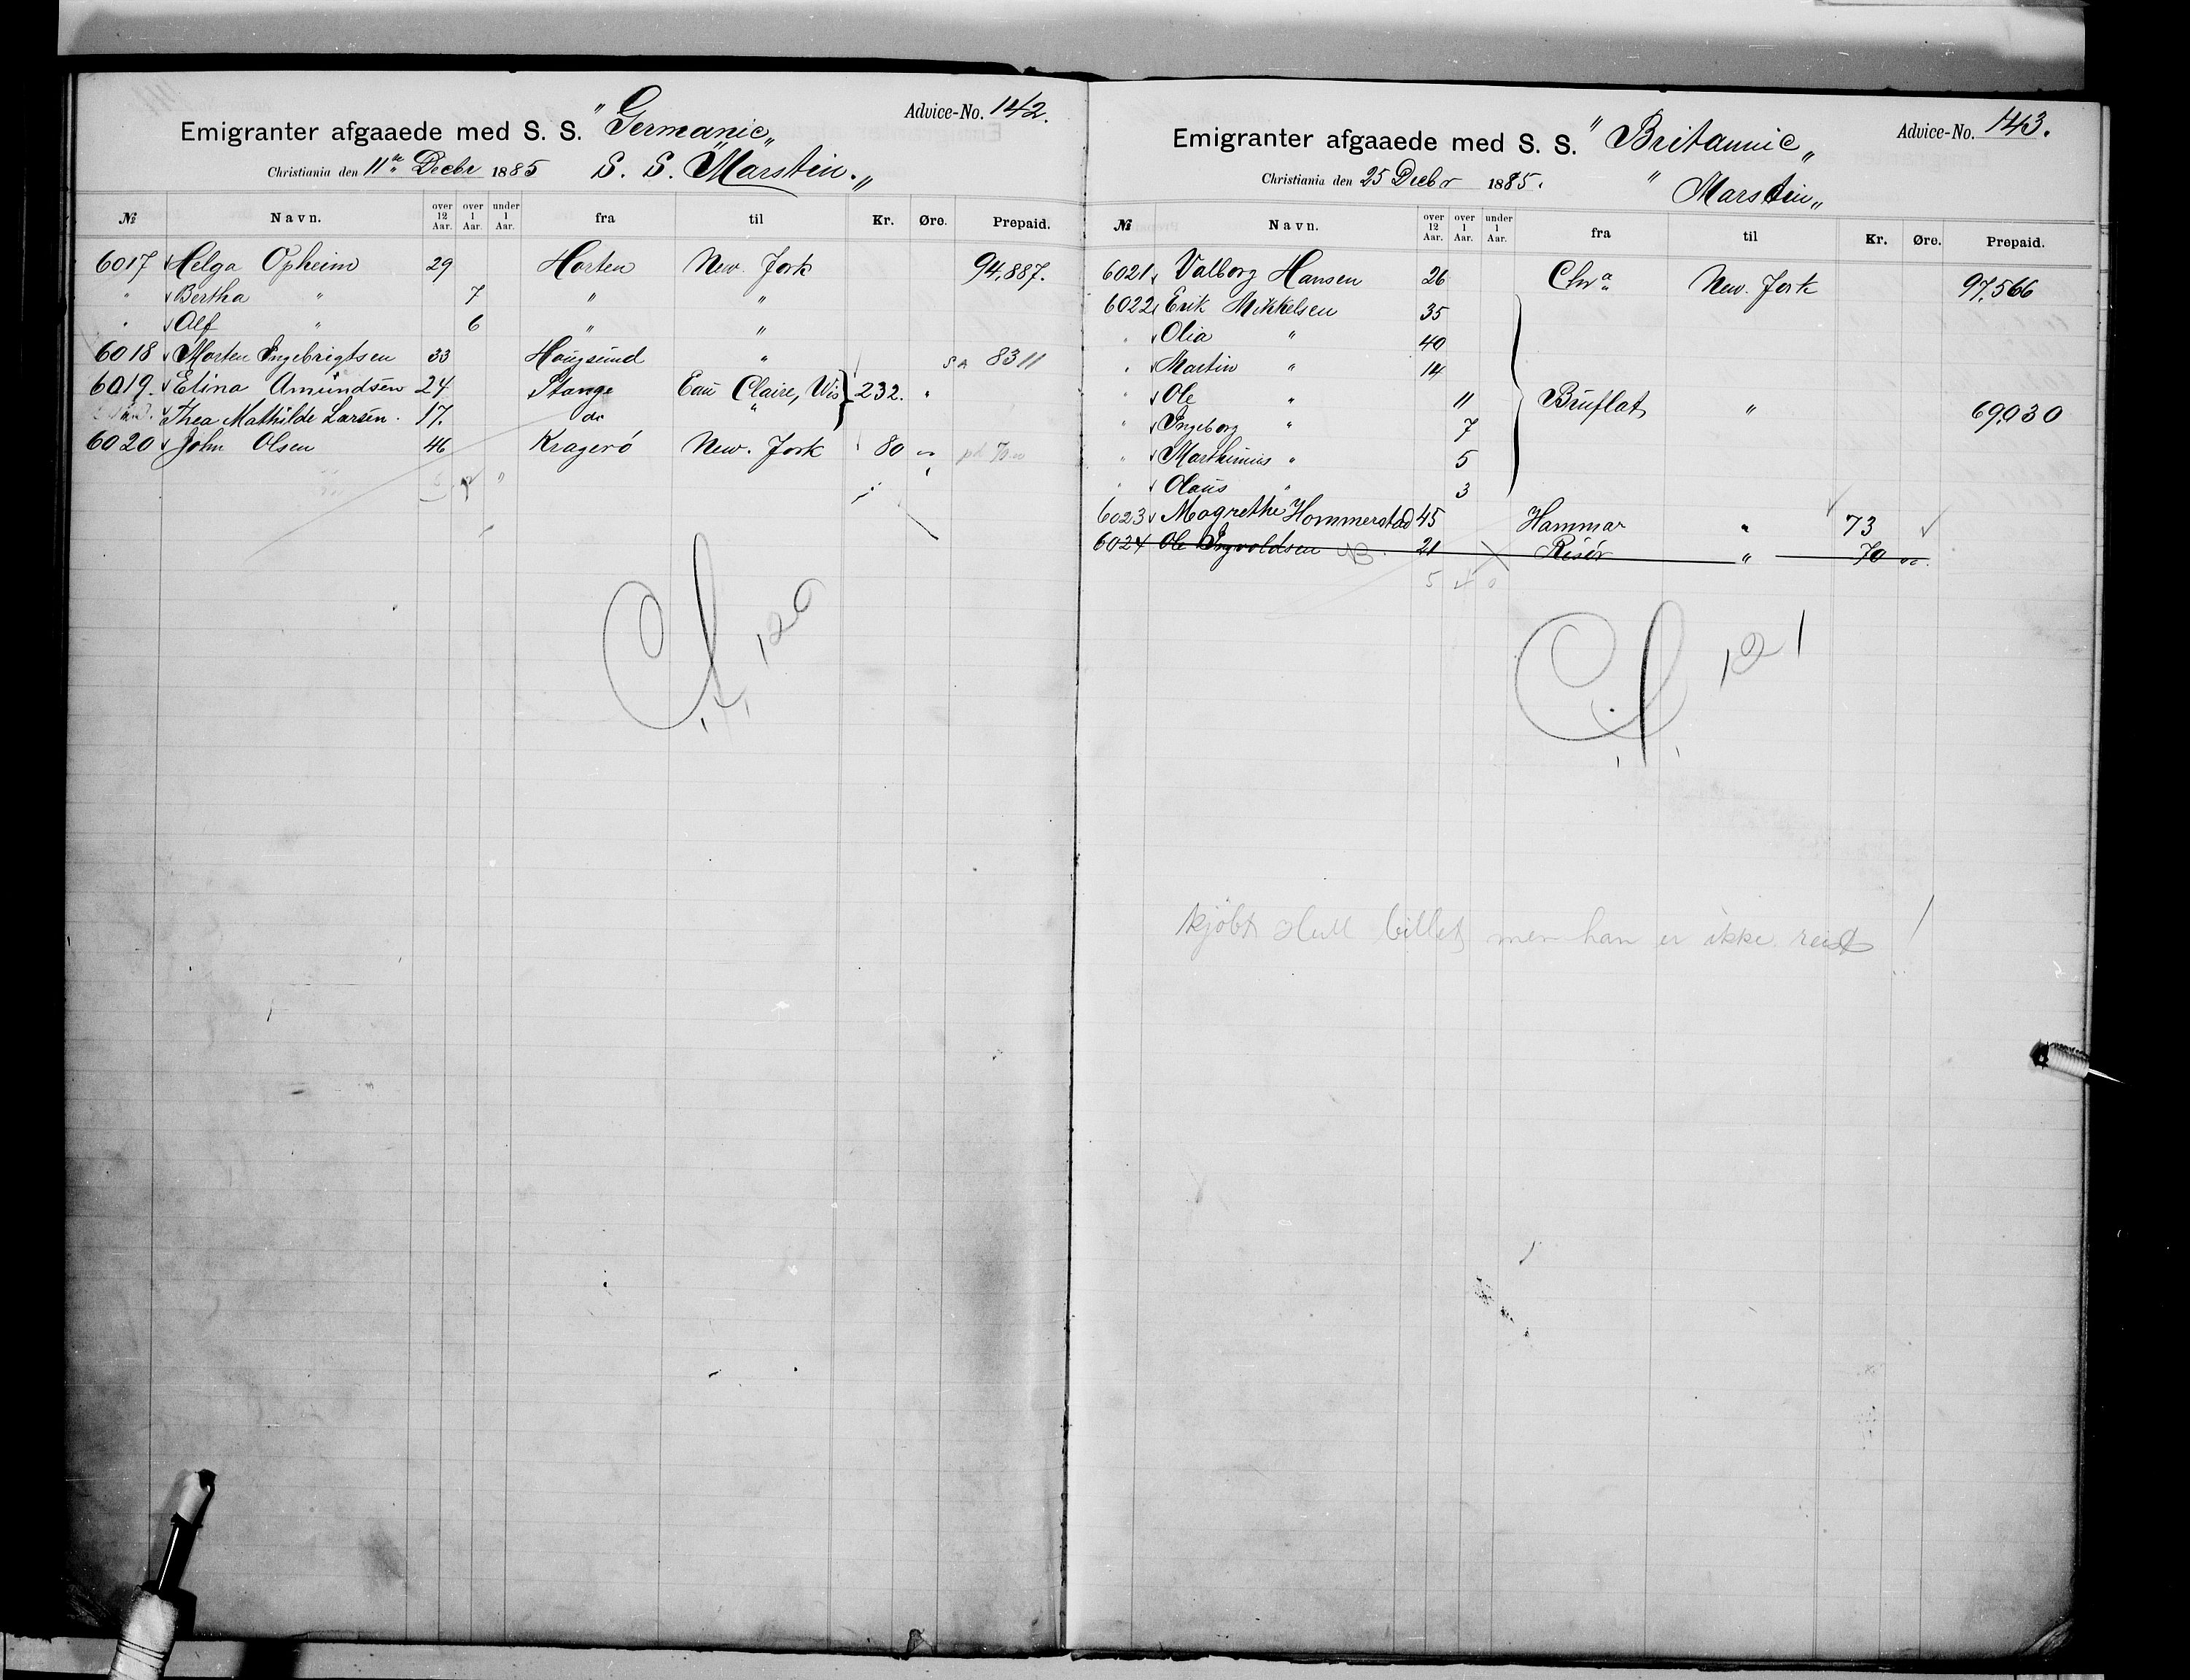 Advice-No. 142.
Emigranter afgaaede med S. S. "Germanic„
Christiania den 11te Decbr 1885 S. S. "Marstein.„
№ Navn. over 12 Aar. over 1 Aar. under 1 Aar. fra til Kr. Øre. Prepaid.
6017 Helga Opheim 29 Horten New York 94,887.
" Bertha " 7 " "
" Alf " 6 " "
6018 Morten Ingebrigtsen 33 Hougsund " SA 8311
6019. Elina Amundsen 24 Stange Eau Claire, Wis } 232. "
Thea Mathilde Larsen. 17. do "
6020 John Olsen 46 Kragerö New. York 80 "
120
Advice-No. 143.
Emigranter afgaaede med S. S. "Britannic„
Christiania den 25 Decbr 1885. " Marstein„
№ Navn. over 12 Aar. over 1 Aar. under 1 Aar. fra til Kr. Øre. Prepaid.
6021 Valborg Hansen 26 Chra New. York 97,566
6022 Erik Mikkelsen 35
" Olia " 40
" Martin " 14
" Ole " 11 Bruflat " 69,030
" Ingeborg " 7
" Marthinius " 5
" Olaus " 3
6023 Magrethe Hommerstad 45 Hammar " 73
6024 Ole Ingvoldsen 21 Risör " 70 oo.
5 4 0
121
kjöbt Hull billet men han er ikke reist